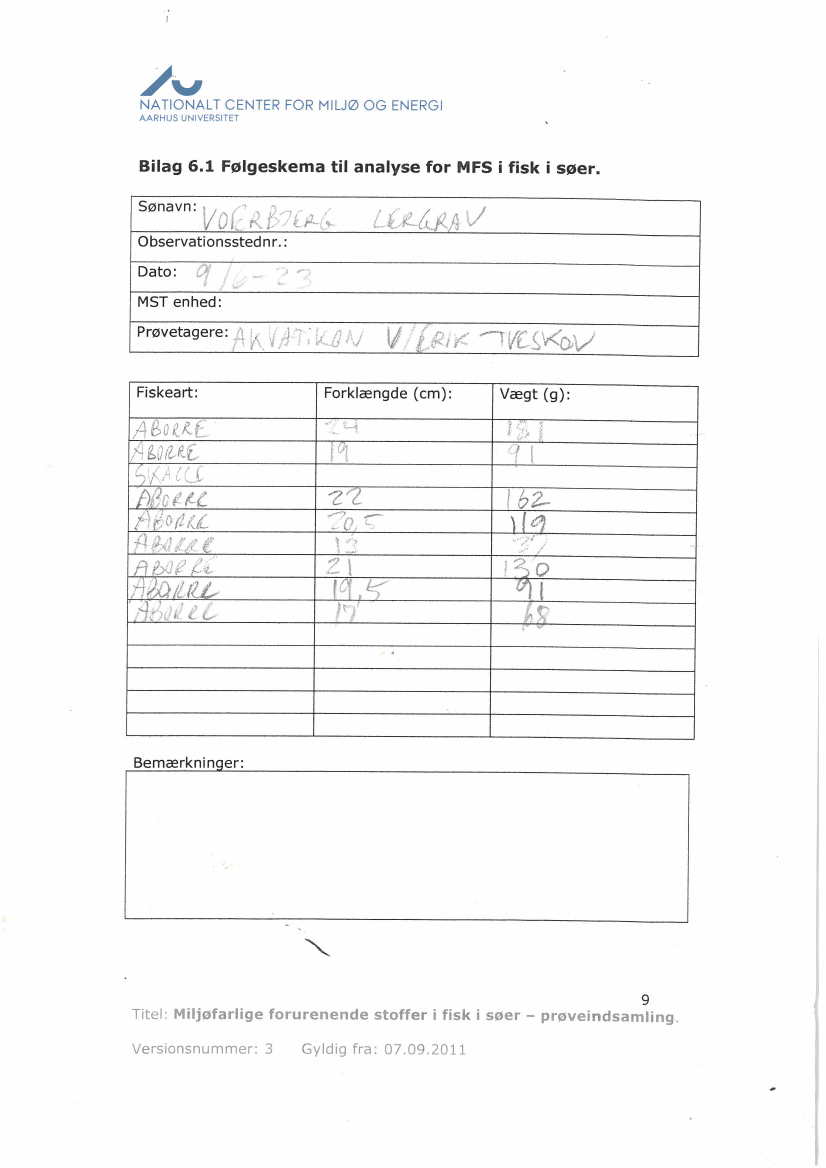 NATIONALT CENTER FOR MILJØ OG ENERGI
AARHUS UNIVERSITET
Bilag 6.1 Følgeskema til analyse for MFS i fisk i søer.
Sønavn: VOERBJERG LERGRAV
Observationsstednr.:
Dato: 9/6-23
MST enhed:
Prøvetagere: AKVATIKON V/ERIK TVESKOV
Fiskeart: Forklængde (cm): Vægt (g):
ABORRE 24 181
ABORRE 19 91
SKALLE
ABORRE 22 162
ABORRE 20,5 119
ABORRE 13 37
ABORRE 21 130
ABORRE 19,5 91
ABORRE 17 68
Bemærkninger:
9
Titel: Miljøfarlige forurenende stoffer i fisk i søer – prøveindsamling.
Versionsnummer: 3 Gyldig fra: 07.09.2011